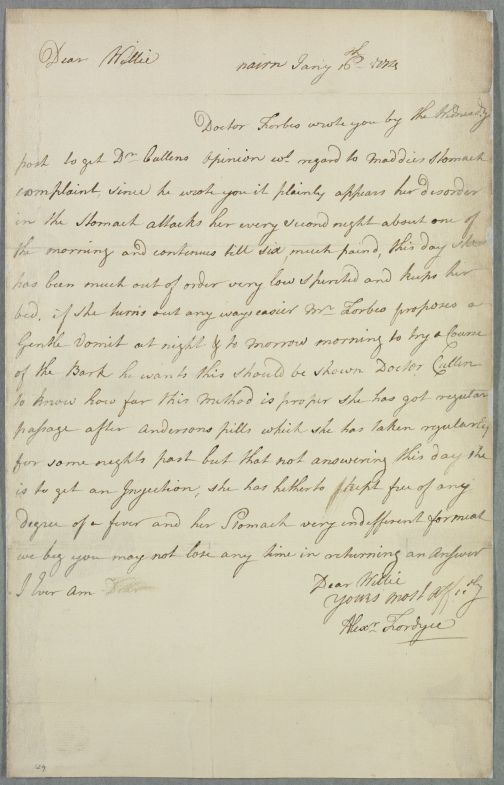 Dear Willie nairn Janry 16th
Doctor Forbes wrote you by the Wednesday
post to get Dr. Cullens Opinion wt. regard to Maddies Stomach
complaint, since he wrote you it plainly appears her disorder
in the Stomach attacks her every second night about one of
the morning and continues till six much paind, this day she
has been much out of order very low spirited and keeps her
bed, if she turns out any ways easier Mr. Forbes proposes a
Gentle Vomit at night & to morrow morning to try a Course
of the Bark he wants this should be shown Doctor Cullen
to know how far this Method is proper she has got regular
passage after Andersons pills which she has taken regularly
for some nights past but that not answering this day she
is to get an Injection, she has hetherto kept free of any
degree of a fever and her Stomach very indefferent for meat
we beg you may not lose any time in returning an Answer
I Ever am
Dear Willie
yours most
Alexr. Fordyce
129